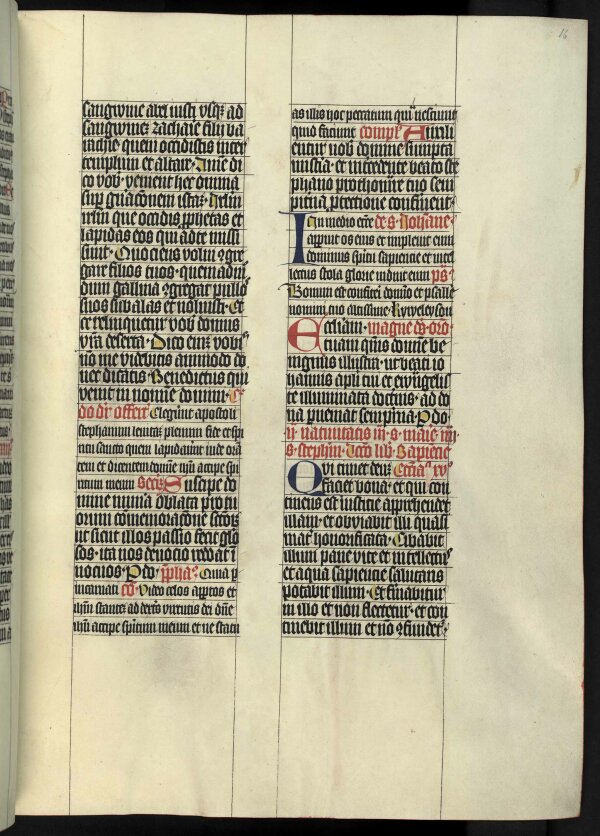 16
sangwine abel iusti usq; ad
sangwinē zacharie filij ba
rachie quem occidistis inter
templum et altare · Amē di
co vob' · venient hec omīa
sup gnacōnem istaȝ · Jhrlm
irlm que occidis ꝓphetas et
lapidas eos qui ad te missi
sunt · Quociens volui ꝯgre
gare filios tuos · quēadm
dum gallina ꝯgregat pullos
suos sub alas et noluisti · Ec
ce relinquetur vob' domus
vr̄a deserta · Dico eni vobis
nō me videbitis ammodo do
nec dicatis · Benedictus qui
venit in nomine domini · C
do dr̄ offer̄ Elegerūt apostoli
stephanum leuitā plenum fide et spi
ritu sancto quem lapidauerūt iudei orā
tem et dicentem domine ih̄u accipe spi
ritum meum Secr̄ Suscipe do
mine munera oblata pro tu
orum cōmemoracōne scōrum
ut sicut illos passio fecit glo
sos · ita nos deuocio reddat ī
nocuos · P do · p̄fha · Quia p
incarnati cō Video celos aptos et
ih̄m stantē ad dextrā virtutis dei dn̄e
ih̄u accipe spm̄ meum et ne statu
as illis hoc peccatum quia nesciunt
quid faciunt compl' Auxili
entur nob' domine sumpta
misteria · et intercedente beato ste
phano prothomire tuo sem
piterna protectione confirment ·
In medio ecc̄e de s. Johāne
apperuit os eius et impleuit eum
dominus spiritu sapiencie et intel
lectus stola glorie induit eum ps
Bonum est confiteri domino et psalle
nomini tuo altissime · kyrieleyson
Ecclesiam · magne dō oro
tuam quesumus domine be
nignus illustra · ut beati io
hannis apl'i tui et ewangelis
te illuminata doctrinis · ad do
na perueniat sempiterna · P do
ii · natiuitatis iii · s. marie iiii
s. stephani · Lc̄co lib' Sapiene
Qui timet deum Ecc̄ia xv
faciet bona · et qui con
tinens est iusticie apprehendet
illam · et obuiabit illi quasi
mat' honorificata · Cibabit
illum pane vite et intellectus
et aqua sapiencie salutaris
potabit illum · Et firmabitur
in illo et non flectetur · et con
tinebit illum et nō ꝯfundet